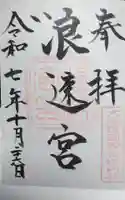 奉拝
浪速宮
令和七年十月二十六日